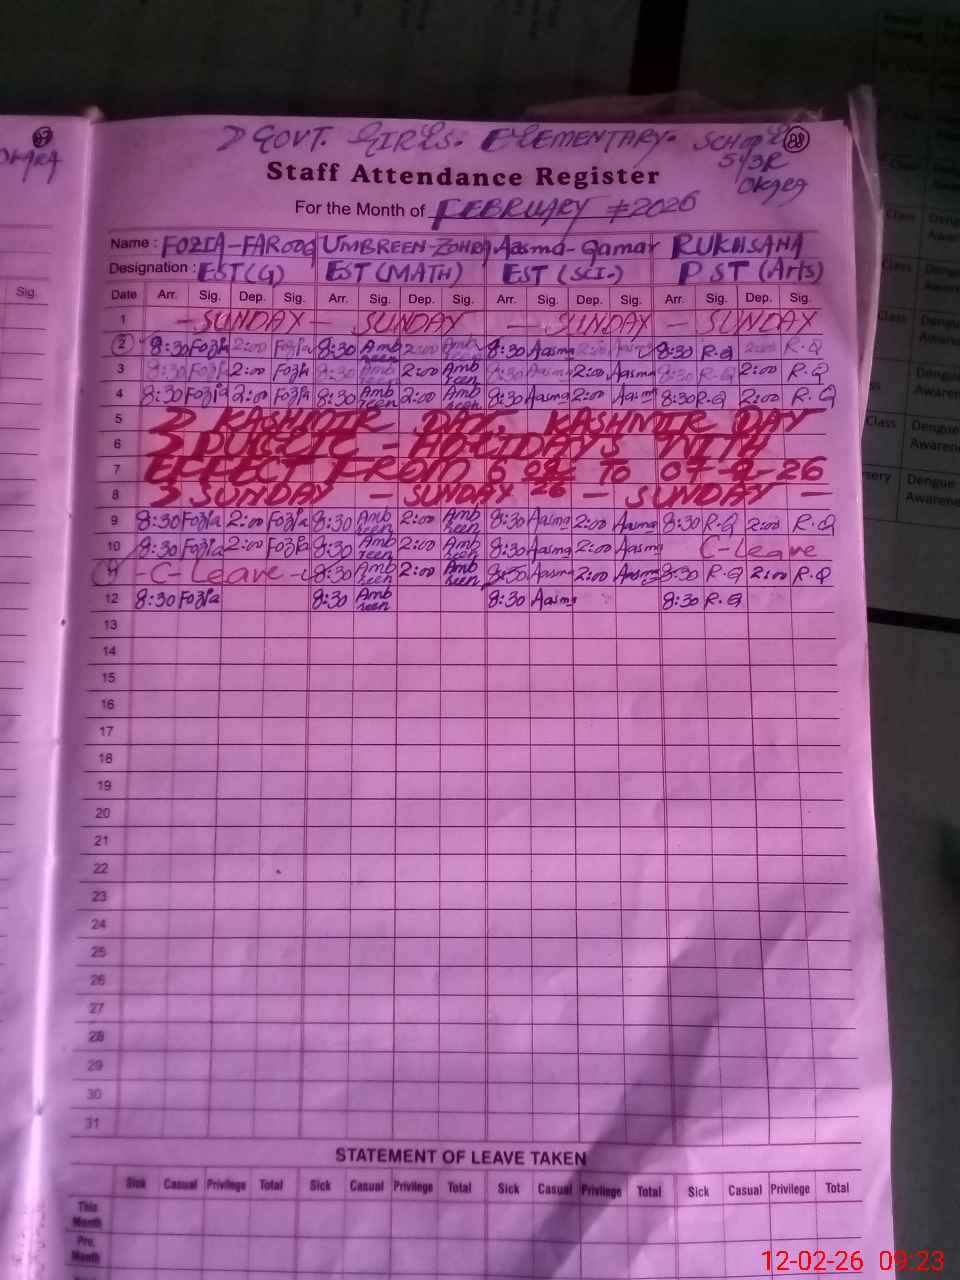 GOVT. GIRLS. ELEMENTARY. SCHOOL 88
5/3R
OKARA
OKARA
Staff Attendance Register
For the Month of FEBRUARY #2026
Name : FOZIA-FAROOQ UMBREEN-ZOHRA Aasma-Qamar RUKHSANA
Designation : EST(G) EST(MATH) EST (SCI.) PST (Arts)
Sig.
Date Arr. Sig. Dep. Sig. Arr. Sig. Dep. Sig. Arr. Sig. Dep. Sig. Arr. Sig. Dep. Sig.
1 - SUNDAY - SUNDAY - SUNDAY - SUNDAY
2 8:30 Fozia 2:00 Fozia 8:30 Ambreen 2:00 Ambreen 8:30 Aasma 2:00 Aasma 8:30 R.Q 2:00 R.Q
3 8:30 Fozia 2:00 Fozia 8:30 Ambreen 2:00 Ambreen 8:30 Aasma 2:00 Aasma 8:30 R.Q 2:00 R.Q
4 8:30 Fozia 2:00 Fozia 8:30 Ambreen 2:00 Ambreen 8:30 Aasma 2:00 Aasma 8:30 R.Q 2:00 R.Q
5 KASHMIR DAY. KASHMIR DAY
6 PUBLIC - HOLIDAYS WITH
7 EFFECT FROM 6 02 TO 07-2-26
8 SUNDAY - SUNDAY 26 - SUNDAY -
9 8:30 Fozia 2:00 Fozia 8:30 Ambreen 2:00 Ambreen 8:30 Aasma 2:00 Aasma 8:30 R.Q 2:00 R.Q
10 8:30 Fozia 2:00 Fozia 8:30 Ambreen 2:00 Ambreen 8:30 Aasma 2:00 Aasma C-Leave
11 - C- Leave - 8:30 Ambreen 2:00 Ambreen 8:30 Aasma 2:00 Aasma 8:30 R.Q 2:00 R.Q
12 8:30 Fozia 8:30 Ambreen 8:30 Aasma 8:30 R.Q
13
14
15
16
17
18
19
20
21
22
23
24
25
26
27
28
29
30
31
STATEMENT OF LEAVE TAKEN
Sick Casual Privilege Total Sick Casual Privilege Total Sick Casual Privilege Total Sick Casual Privilege Total
This Month
Pre. Month
Class Dengue Awareness
Class
Class
Class Dengue Awareness
Dengue Awareness
12-02-26 09:23